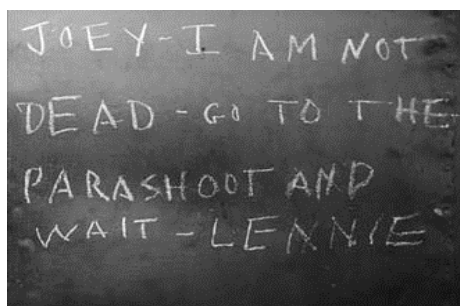 JOEY-I AM NOT
DEAD - GO TO THE
PARASHOOT AND
WAIT - LENNIE